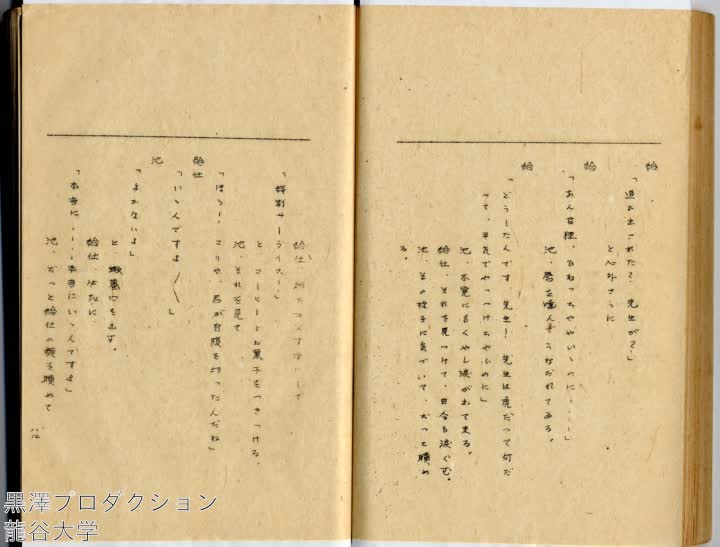 給
「追ひ出された？　先生が？」
と心外さうに
給
「あんな狸、ひねつちややいゝのに‥‥」
池、唇を噛んでうなだれてゐる。
給
「どうしたんです　先生！　先生は虎だつて何だ
つて、平気でやつつけちやふのに」
池、不覚にもくやし涙が出て来る。
給仕、それを見つけて、自分も涙ぐむ。
池、その様子に気づいて、ぢつと眺め
る。
給仕
「特別サーヴイス！」
と　コーヒーとお菓子をつきつける。
池、それを見て
「ほう！　こりや、君が自腹を切つたんだね」
給仕
「いゝんですよ〳〵」
池
「よかないよ」
と　蟇口を出す。
給仕
「本当に‥‥本当にいゝんですよ」
池、ぢつと給仕の顔を眺めて
黒澤プロダクション
龍谷大学